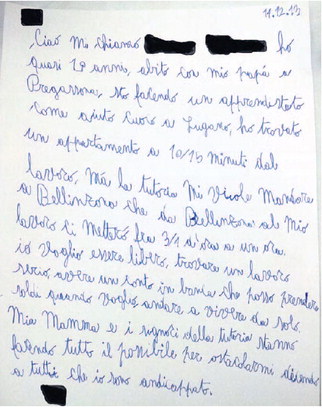 14.12.13
Ciao Mi chiamo ho
quasi 18 anni, abito con mio papà a
Pregassona, sto facendo un apprendistato
come aiuto cuoco a Lugano, ho trovato
un appartamento a 10/15 minuti dal
lavoro, ma la tutoria Mi vuole Mandare
a Bellinzona che da Bellinzona al Mio
lavoro ci Metterò fra 3/4 d'ora a un ora.
io voglio essere libero, trovare un lavoro
serio, avere un conto in banca che posso prendere
soldi quando voglio, andare a vivere da solo.
Mia Mamma e i signori della tutoria stanno
facendo tutto il possibile per ostacolarmi dicendo
a tutti che io sono andicappato.